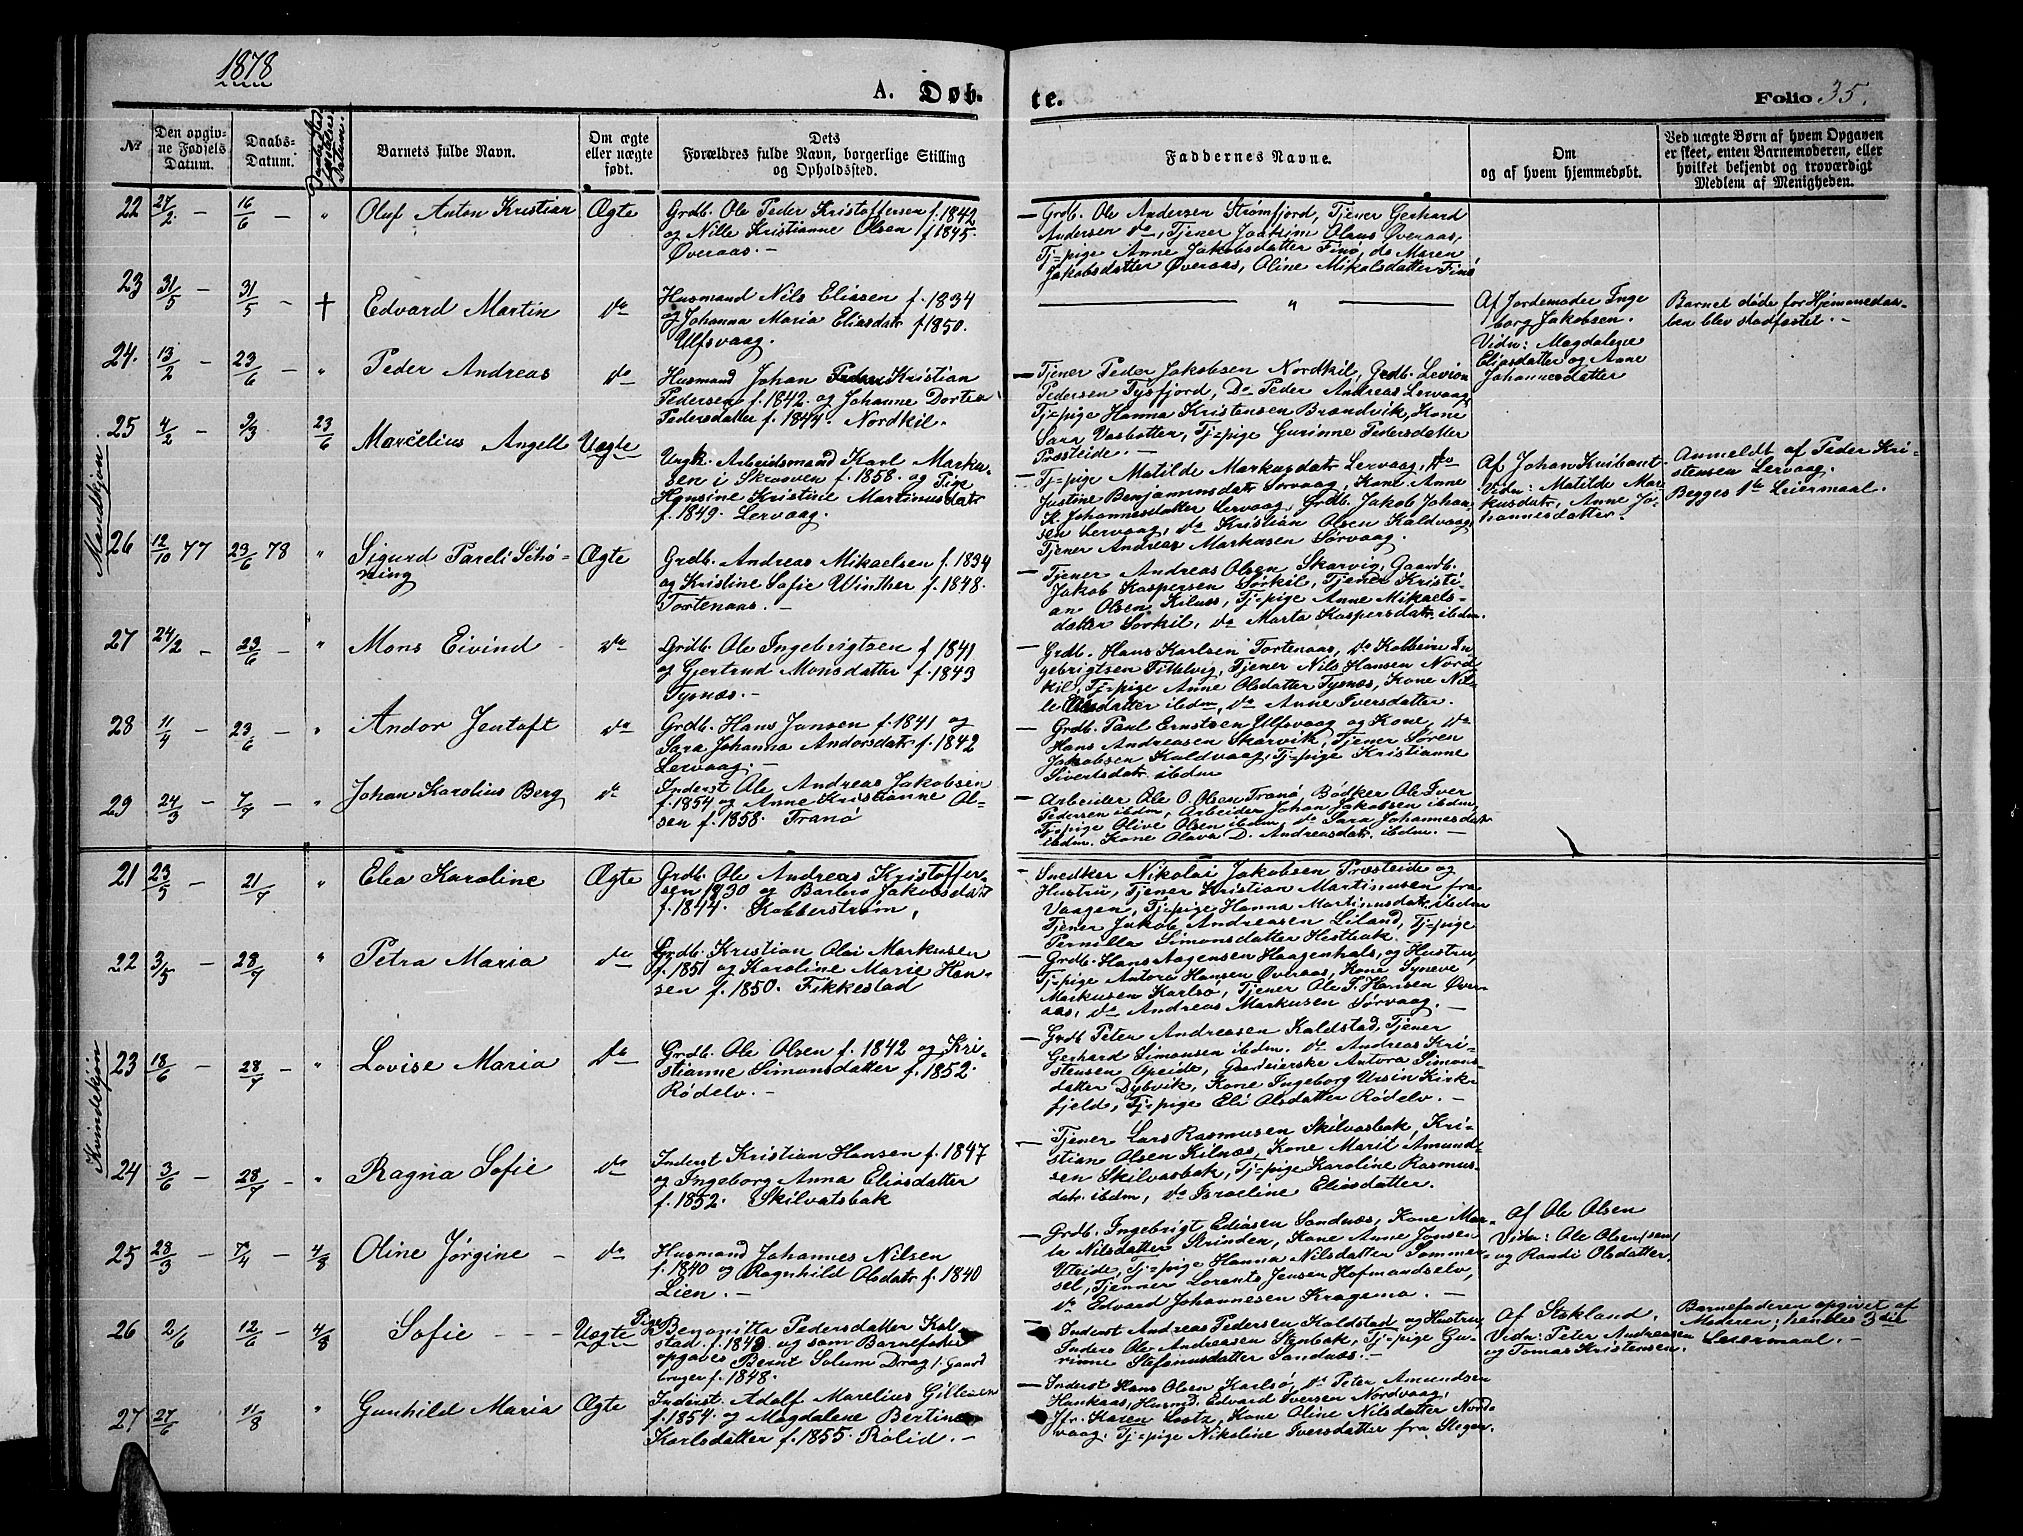 1878
A. Døb-
№
Den opgiv-
ne Fødsels
Datum.
Daabs-
Datum.
Barnets fulde Navn.
Om ægte
eller uægte
født.
Dets
Forældres fulde Navn, borgerlige Stilling
og Opholdssted.
Mandkjøn
22 27/2 — 16/6 — " Oluf Anton Kristian Ægte Grdb. Ole Peder Kristoffersen f. 1842
og Nille Kristianne Olsen f 1845.
Øveraas. —
23 31/5 — 31/5 — † Edvard Martin do Husmand Nils Eliasen f. 1834
og Johanna Maria Eliasdatr f. 1850.
Ulfsvaag.
24. 13/2 — 23/6 — " Peder Andreas do Husmand Johan Kristian
Pedersen f. 1842. og Johanne Dortea
Pedersdatter f. 1844. Nordkil.
25 4/2 — 3/3 23/6 Marcelius Angell Uægte Ungk. Arbeidsmand Karl Marku-
sen i Skroven f. 1858. og Pige
Hansine Kristine Martinusdatr
f. 1849. Lervaag.
26 12/10 77 23/6 78 " Sigurd Pareli Schø-
ning Ægte Grdb. Andreas Mikaelsen f. 1834
og Kristine Sofie Winther f. 1848.
Tortenaas. —
27 24/2 — 23/6 — " Mons Eivind — do Grdb. Ole Ingebrigtsen f 1841
og Gjertrud Monsdatter f. 1843
Tysnæs. —
28 11/4 — 23/6 — " Andor Jentoft do Grdb. Hans Jansen f. 1841 og
Sara Johanna Andorsdatr f. 1842
Lervaag. —
29 24/3 — 7/7 — " Johan Karolius Berg do Inderst Ole Andreas Jakobsen
f. 1854 og Anne Kristianne Ol-
sen f. 1858. Tranø
Kvindekjøn
21 23/5 — 21/7 " Elea Karoline Ægte Grdb. Ole Andreas Kristoffer-
sen 1830 og Barbro Jakobsdatr
f. 1844. Kobberstrøm,
22 3/5 — 28/7 " Petra Maria do Grdb. Kristian Olai Markusen
f. 1851 og Karoline Marie Han-
sen f. 1850. Fikkestad
23 18/6 — 28/7 — " Lovise Maria do Grdb. Ole Olsen f. 1842 og Kri-
stianne Simonsdatter f. 1852.
Rødelv. —
24 3/6 — 28/7 — " Ragna Sofie do Inderst Kristian Hansen f. 1847
og Ingeborg Anna Eliasdatter
f. 1852. Skilvatsbak
25 28/3 — 7/4 — 4/8 Oline Jørgine — do Husmand Johannes Nilsen
f. 1840 og Ragnhild Olsdatr f. 1840
Lien. —
26 2/6 12/6 — 4/8 Sofie — — — Uægte Pige Pedersdatter Kal-
stad. f. 1843 og som Barnefader
opgaves Bernt Solum Drag i. Gaard
bruger f. 1848.
27 27/6 11/8 " Gunhild Maria Ægte Inderst. Adolf Marelius
f. 1854. og Magdalene Bertine
Karlsdatter f. 1855. Rølid. —
te.
Folio 35.
Faddernes Navne.
Om
og af hvem hjemmedøbt.
Ved uægte Børn af hvem Opgaven
er skeet, enten Barnemoderen, eller
hvilket bekjendt og troværdigt
Medlem af Menigheden.
— Grdb. Ole Andersen Strømfjord, Tjener Gerhard
Andersen do, Tjener Joakim Olaus Øveraas,
Tj=pige Anne Jakobsdatter Finø, do Maren
Jakobsdatter Øveraas, Oline Mikalsdatter Finø
— " —
Af Jordemoder Inge
borg Jakobsen.
Vidn: Magdalene
Eliasdatter og Anne
Johannesdatter
Barnet døde før Hjemmedaa-
ben blev stadfæstet. —
— Tjener Peder Jakobsen Nordkil, Grdb. Levion
Pedersen Tysfjord, Do Peder Andreas Lervaag
Tj=pige Hanna Kristensen Brandvik, Kone
Sara Vasbotten, Tj=pige Gurinne Pedersdatter
Præsteide. —
— Tj=pige Matilde Markusdatr Lervaag, do
Justine Benjaminsdatr Sørvaag, Kone Anne
K. Johannesdatter Lervaag, Grdb. Jakob Johan-
sen Lervaag, do Kristian Olsen Kaldvaag
Tjener Andreas Markusen Sørvaag.
Af Johan
Vidn: Matilde Mar-
kusdatr, Anne Jo-
hannesdatter.
Anmeldt af Peder Kri-
stensen Lervaag.
Begges 1ste Leiermaal.
— Tjener Andreas Olsen Skarvig, Gaardb.
Jakob Kaspersen Sørkil, Tjener Kristi-
an Olsen Kilnæs, Tj=pige Anne Mikaels-
datter Sørkil, do Marta Kaspersdatr ibidm.
— Grdb. Hans Karlsen Tortenaas, do Kolbein In-
gebrigtsen Tittelvig, Tjener Nils Hansen Nord-
kil, Tj=pige Anne Olsdatter Tysnæs, Kone Nil-
le Olsdatter ibdm, do Anne Iversdatter.
— Grdb. Paul Ernstsen Ulfsvaag og Kone, do
Hans Andreasen Skarvik, Tjener Søren
Jakobsen Kaldvaag, Tj=pige Kristianne
Sivertsdatr ibdm
— Arbeider Ole O. Olsen Tranø, Bødker Ole Iver
Pedersen ibdm, Arbeider Johan Jakobsen ibdm,
Tj=pige Olive Olsen ibdm, do Sara Johannesdatr
ibdm. Kone Olava D. Andreasdatr ibdm. —
— Snedker Nikolai Jakobsen Præsteide og
Hustru, Tjener Kristian Martinusen fra
Vaagen, Tj=pige Hanna Martinusdatr ibdm
Tjener Jakob Andreasen Liland, Tj=pige
Pernilla Simonsdatter Hestbak. —
— Grdb. Hans Aagensen Haagenhals, og Hustru,
Tj=pige Antora Hansen Øveraas, Kone Synève
Markusen Karlsø, Tjener Ole P. Hansen Øver-
aas, do Andreas Markusen Sørvaag. —
— Grdb Peter Andreasen Kaldstad, Tjener
Gerhard Simonsen ibdm. do Andreas Kri-
stensen Opeide, Gaardeierske Antora Simons-
datter Dybvik, Kone Ingeborg Ursin Kirk-
fjeld, Tj=pige Eli Olsdatter Rødelv. —
— Tjener Lars Rasmusen Skilvasbak, Kri-
stian Olsen Kilnæs, Kone Marit Amund-
sen Skilvasbak, Tj=pige Karoline Rasmus-
datr ibdm, do Israeline Eliasdatter.
— Grdb. Ingebrigt Eliasen Sandnæs, Kone Mar-
ta Nilsdatter Strinden, Kone Anne Jonsen
Uteide, Tj=pige Hanna Nilsdatter Sommer-
sel, Tjenner Lorents Jensen Hofmandselv,
do Edvard Johannesen Kragemo. —
Af Ole Olsen
Vidn: Ole Olsen (sen)
og Randi Olsdatter.
— Inderst Andreas Pedersen Kaldstad og Hustru,
Inders Ole Andreasen Stenbak, Tj=pige Gu-
rinne Stefanusdatter Sandnæs. —
af Stokland.
Vidn: Peter Andreasen
og Tomas Kristensen.
Barnefaderen opgivet af
Moderen; hendes 3die
Leiermaal. —
— Inderst Hans Olsen Karlsø, do Peter Amundsen
Haukaas, Husmd. Edvard Iversen Nordvaag,
Jfr. Karen Lootz, Kone Oline Nilsdatter Nord-
vaag, Tj=pige Nikoline Iversdatter fra Stegen.